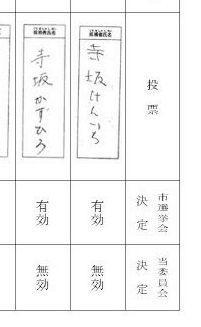 投票
市選挙会決定
当委員会決定
候補者氏名
寺坂けんいち
有効
無効
候補者氏名
寺坂かずひろ
有効
無効